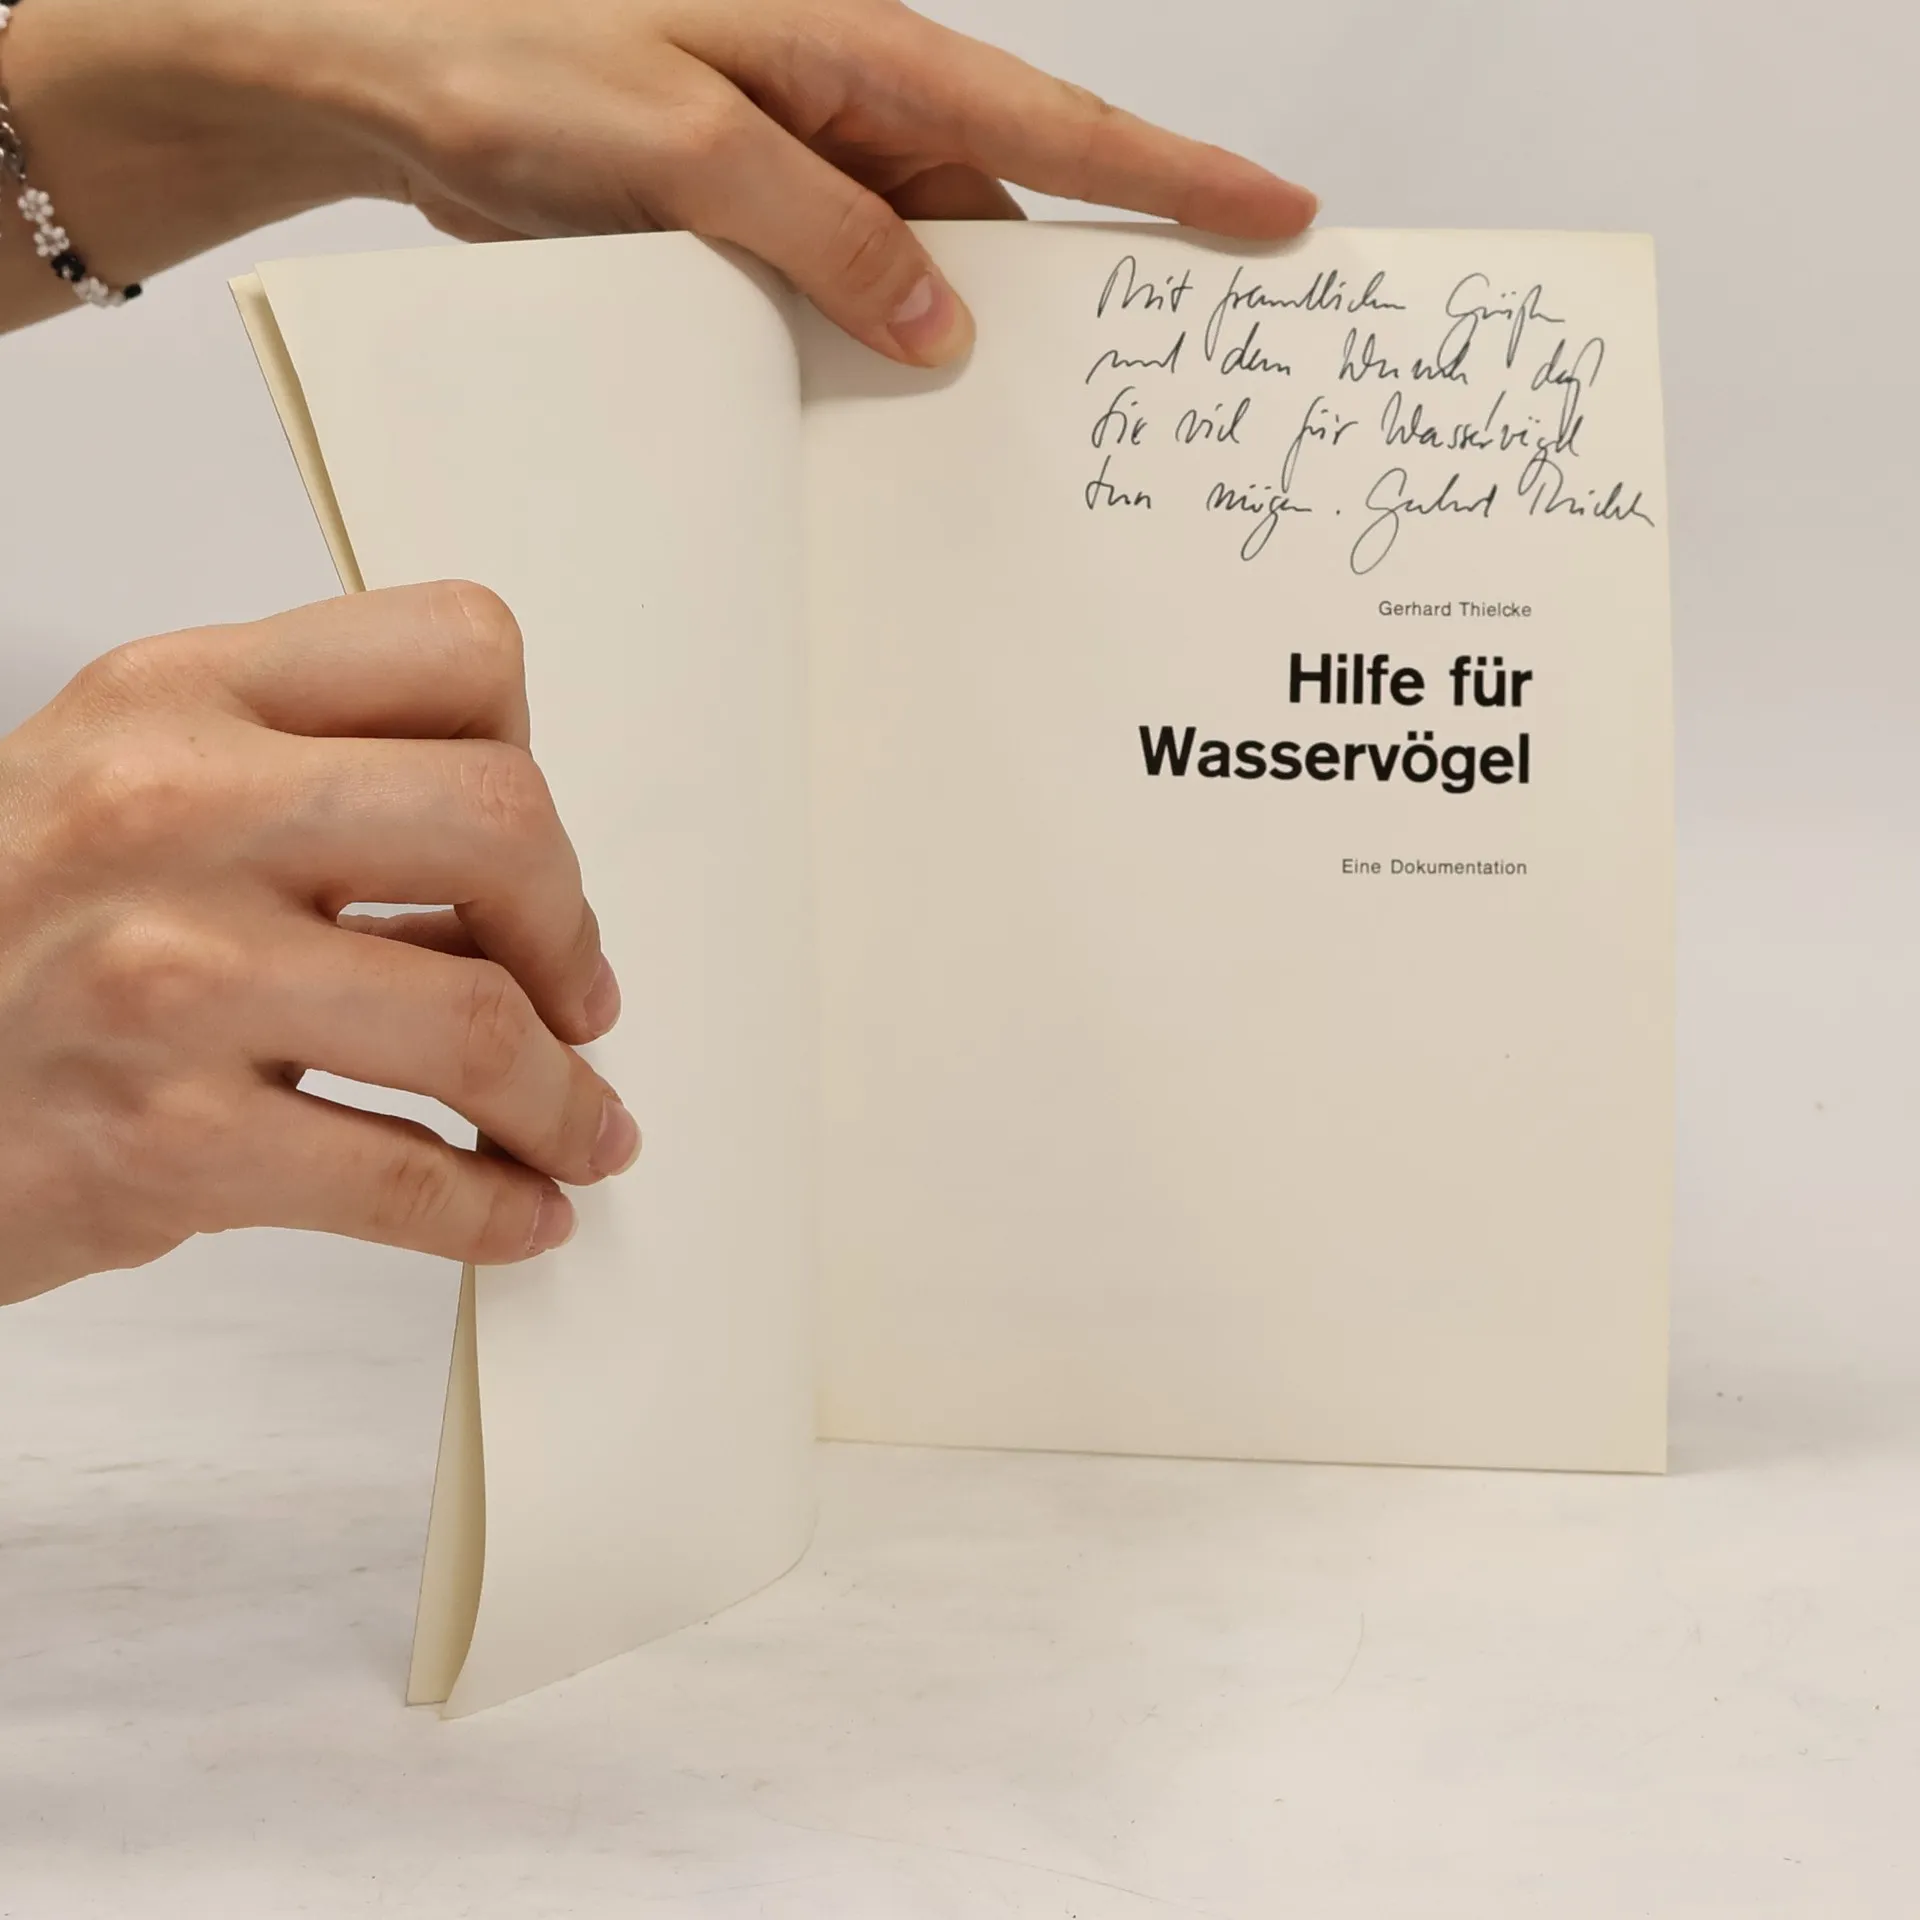 Mit freundlichen Grüßen
und dem Wunsch, daß
Sie viel für Wasservögel
tun mögen. Gerhard Thielcke
Gerhard Thielcke
Hilfe für
Wasservögel
Eine Dokumentation